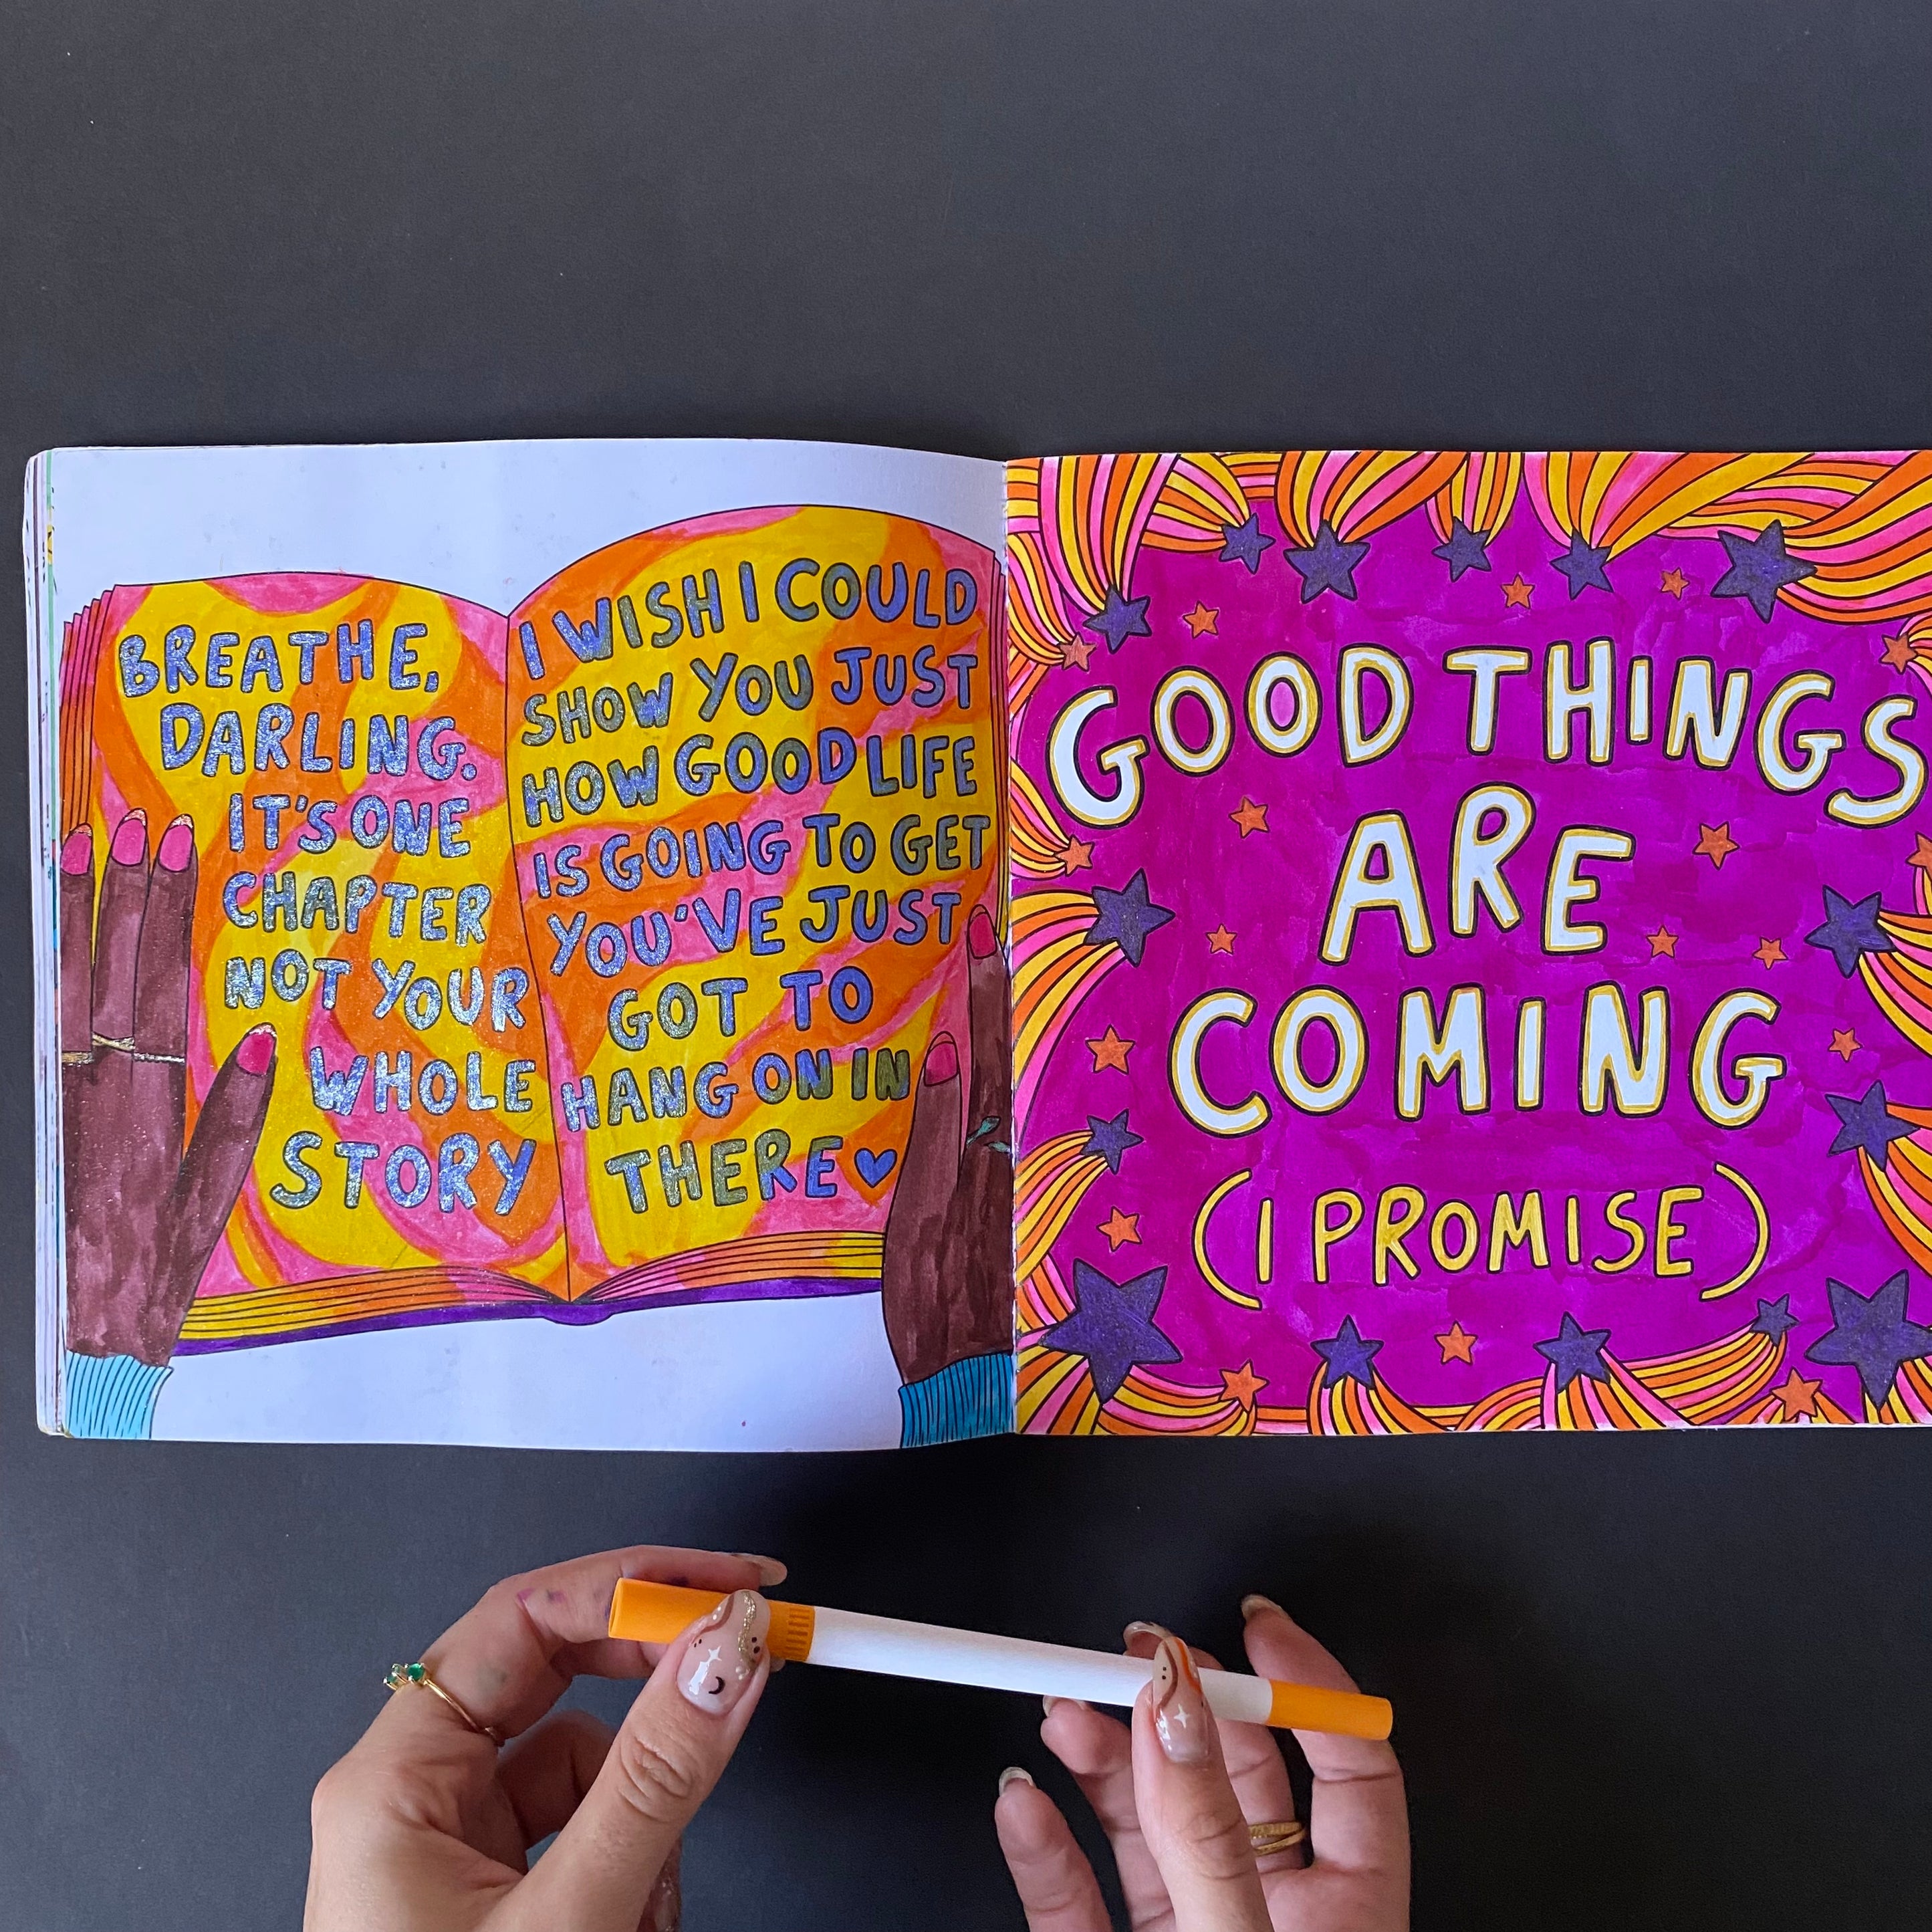 BREATHE,
DARLING.
IT'S ONE
CHAPTER
NOT YOUR
WHOLE
STORY
I WISH I COULD
SHOW YOU JUST
HOW GOOD LIFE
IS GOING TO GET
YOU'VE JUST
GOT TO
HANG ON IN
THERE
GOOD THINGS
ARE
COMING
(I PROMISE)